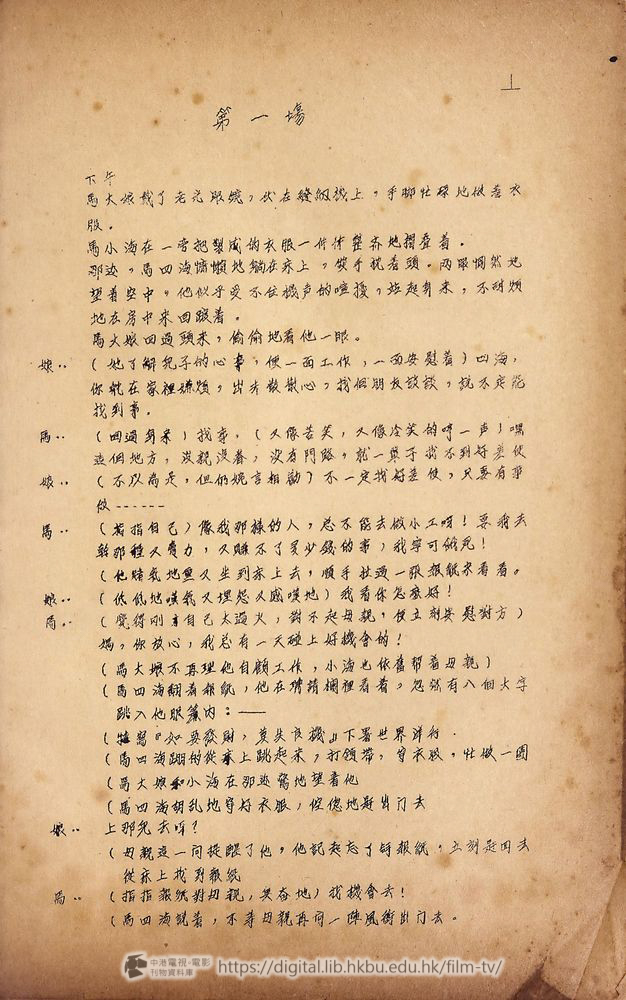 1
第一場
下午
馬大娘戴了老花眼鏡，伏在縫紉機上，手腳忙碌地做着衣
服。
馬小海在一旁把製成的衣服一件件整齊地摺叠着。
那边，馬四海慵懶地躺在床上，雙手枕着頭。两眼惘然地
望着空中。他似乎受不住機声的喧擾，站起身来，不耐煩
地在房中来回踱着。
馬大娘回過頭来，偷偷地看他一眼。
娘：（她了解兒子的心事，便一面工作，一面安慰着）四海，
你就在家裡嫌煩，出去散散心，找個朋友談談，說不定能
找到事。
馬：（回過身来）找事，（又像苦笑，又像冷笑的哼一声）嘿
這個地方，沒親沒眷，沒有門路，就一輩子找不到好差使
娘：（不以為是，但仍婉言相勸）不一定找好差使，只要有事
做------
馬：（若指自己）像我那樣的人，总不能去做小工呀！要我去
幹那種又賣力，又賺不了多少錢的事，我寧可餓死！
（他賭氣地重又坐到床上去，順手扯過一張報紙来看着。
娘：（低低地嘆氣又埋怨又感嘆地）我看你怎麼好！
馬：（覺得剛才自己太過火，對不起母親，便立刻安慰對方）
媽，你放心，我总有一天碰上好機會的！
（馬大娘不再理他自顧工作，小海也依舊幫着母親）
（馬四海翻着報紙，他在聘請欄裡看着，忽然有八個大字
跳入他眼簾内：——
（特寫『如要發財，莫失良機』下署世界洋行．
（馬四海蹦的從床上跳起来，打領帶，穿衣服，忙做一團
（馬大娘和小海在那边驚地望着他
（馬四海胡乱地穿好衣服，倥偬地赶出门去
娘：上那兒去呀？
（母親這一问提醒了他，他記起忘了拿報紙，立刻走回去
從床上找到報紙
馬：（指指報紙對母親，興奋地）找機會去！
（馬四海說着，不等母親再问一陣風衝出门去。
中港電視·電影
刊物資料庫
https://digital.lib.hkbu.edu.hk/film-tv/